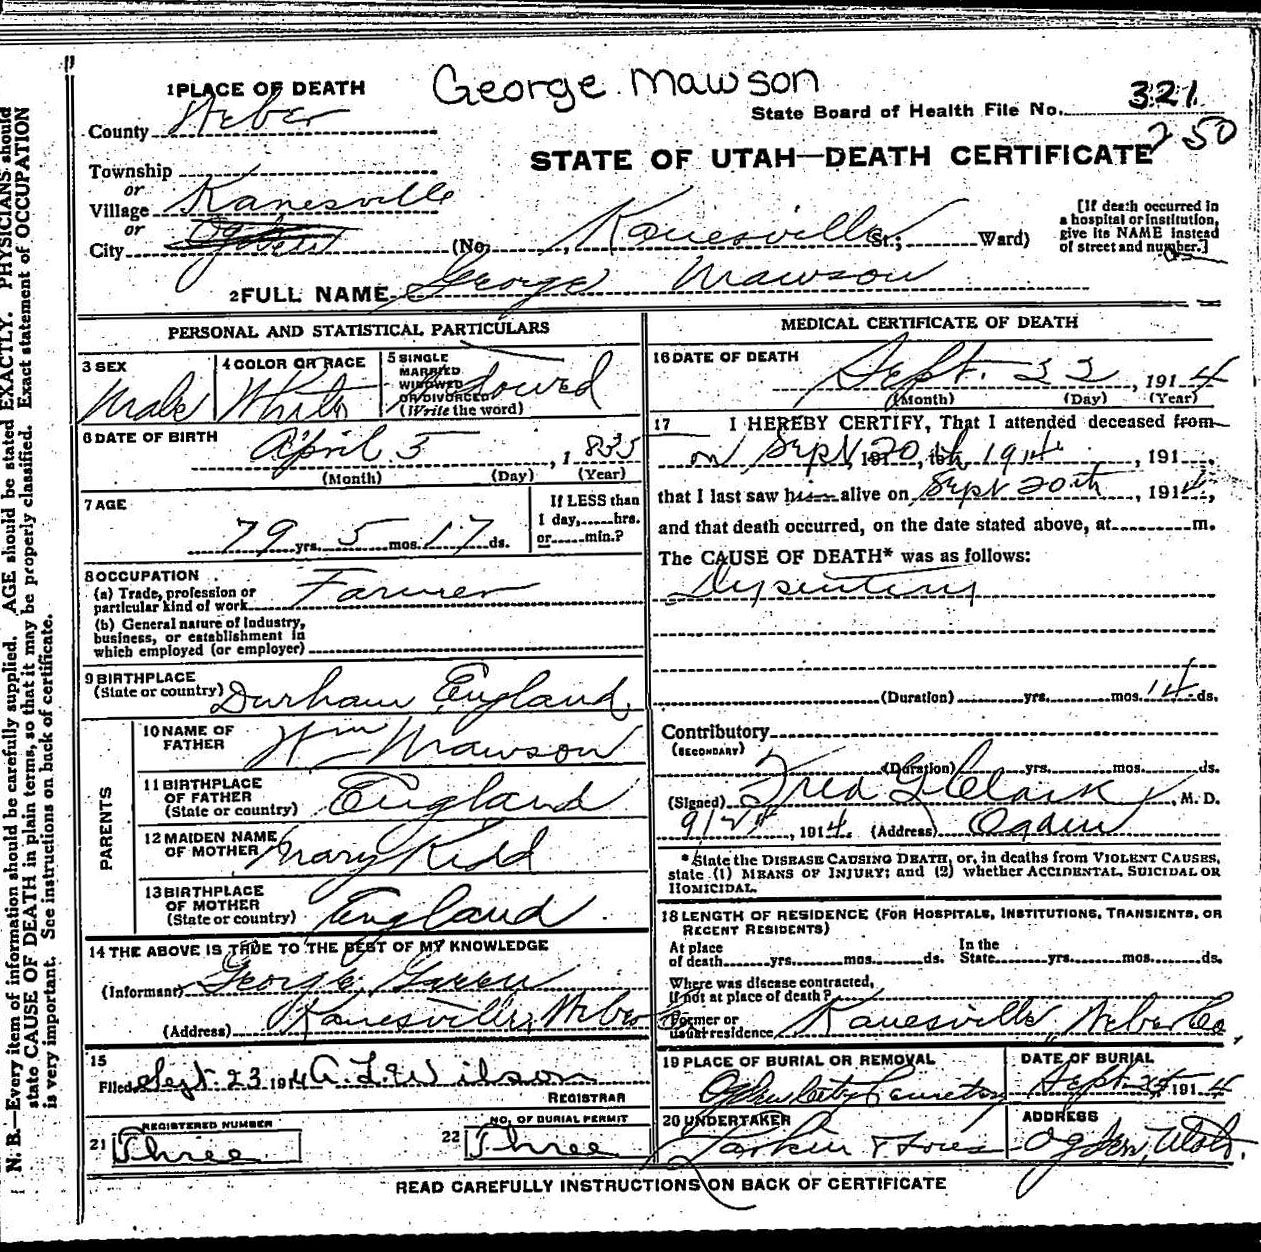 George Mawson
1 PLACE OF DEATH
State Board of Health File No. 321
County Weber
250
STATE OF UTAH—DEATH CERTIFICATE
Township
or
Village Kanesville
or
City (No. , Kanesville St.; Ward)
[If death occurred in a hospital or institution, give its NAME instead of street and number.]
2 FULL NAME George Mawson
PERSONAL AND STATISTICAL PARTICULARS
3 SEX Male
4 COLOR OR RACE White
5 SINGLE MARRIED WIDOWED OR DIVORCED (Write the word) Widowed
6 DATE OF BIRTH April 5, 1835
(Month) (Day) (Year)
7 AGE 79 yrs. 5 mos. 17 ds.
If LESS than 1 day, hrs. or min.?
8 OCCUPATION
(a) Trade, profession or particular kind of work Farmer
(b) General nature of industry, business, or establishment in which employed (or employer)
9 BIRTHPLACE (State or country) Durham England
PARENTS
10 NAME OF FATHER Wm Mawson
11 BIRTHPLACE OF FATHER (State or country) England
12 MAIDEN NAME OF MOTHER Mary Kidd
13 BIRTHPLACE OF MOTHER (State or country) England
14 THE ABOVE IS TRUE TO THE BEST OF MY KNOWLEDGE
(Informant) George Green
(Address) Kanesville, Weber Co
15
Filed Sept. 23 1914 A. L. Wilson
REGISTRAR
21 REGISTERED NUMBER Three
22 NO. OF BURIAL PERMIT Three
MEDICAL CERTIFICATE OF DEATH
16 DATE OF DEATH Sept. 22, 1914
(Month) (Day) (Year)
17 I HEREBY CERTIFY, That I attended deceased from
on Sept 20th 1914, 191 ,
that I last saw him alive on Sept 20th, 1914,
and that death occurred, on the date stated above, at m.
The CAUSE OF DEATH* was as follows:
Dysentery
(Duration) yrs. mos. 14 ds.
Contributory
(SECONDARY)
(Duration) yrs. mos. ds.
(Signed) Fred G Clark, M. D.
, 1914. (Address) Ogden
*State the DISEASE CAUSING DEATH, or, in deaths from VIOLENT CAUSES, state (1) MEANS OF INJURY; and (2) whether ACCIDENTAL, SUICIDAL OR HOMICIDAL.
18 LENGTH OF RESIDENCE (FOR HOSPITALS, INSTITUTIONS, TRANSIENTS, OR RECENT RESIDENTS)
At place of death yrs. mos. ds. In the State yrs. mos. ds.
Where was disease contracted, if not at place of death?
Former or usual residence Kanesville, Weber Co,
19 PLACE OF BURIAL OR REMOVAL Ogden City Cemetery
DATE OF BURIAL Sept. 24 1914
20 UNDERTAKER Larkin & Sons
ADDRESS Ogden, Utah.
READ CAREFULLY INSTRUCTIONS ON BACK OF CERTIFICATE
N. B.—Every item of information should be carefully supplied. AGE should be stated EXACTLY. PHYSICIANS should
state CAUSE OF DEATH in plain terms, so that it may be properly classified. Exact statement of OCCUPATION
is very important. See instructions on back of certificate.